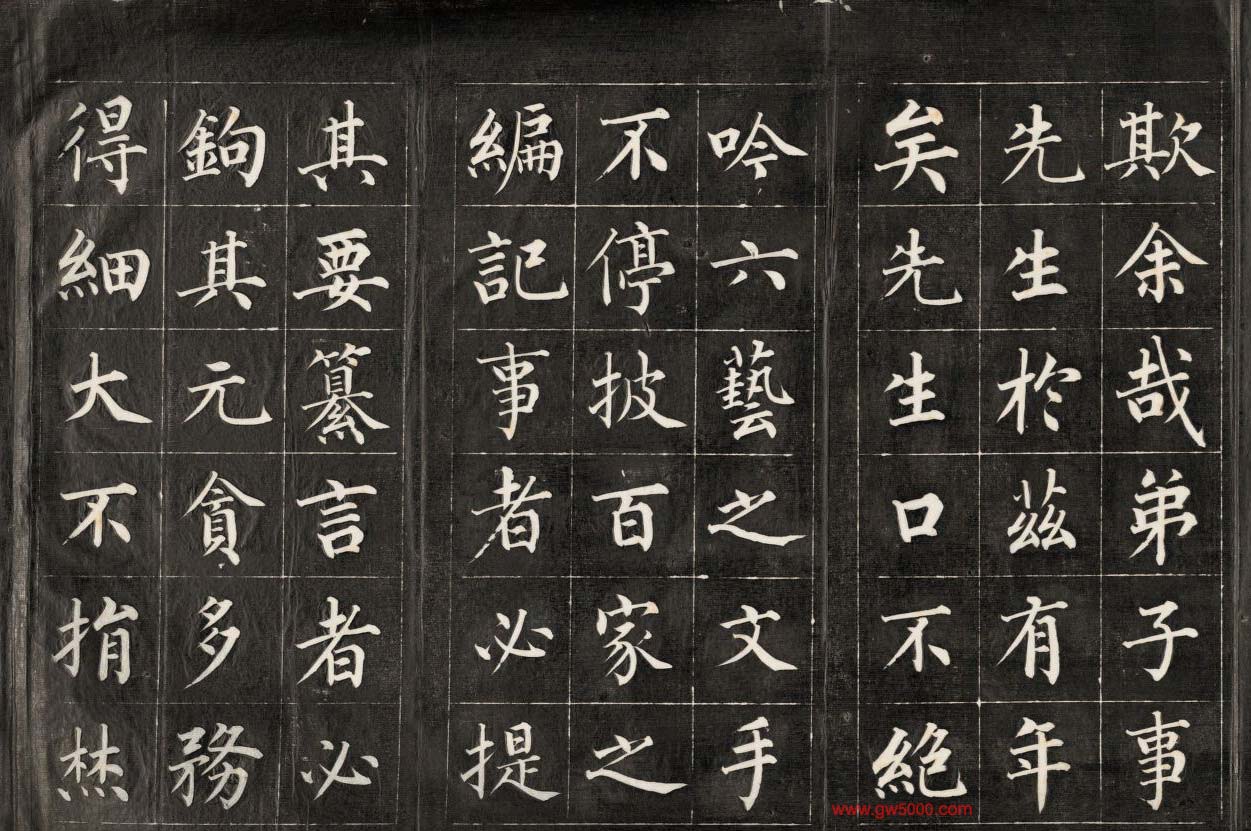 欺余哉弟子事
先生於茲有年
矣先生口不絶
吟六藝之文手
不停披百家之
編記事者必提
其要纂言者必
鉤其元貪多務
得細大不捐焚
www.gw5000.com